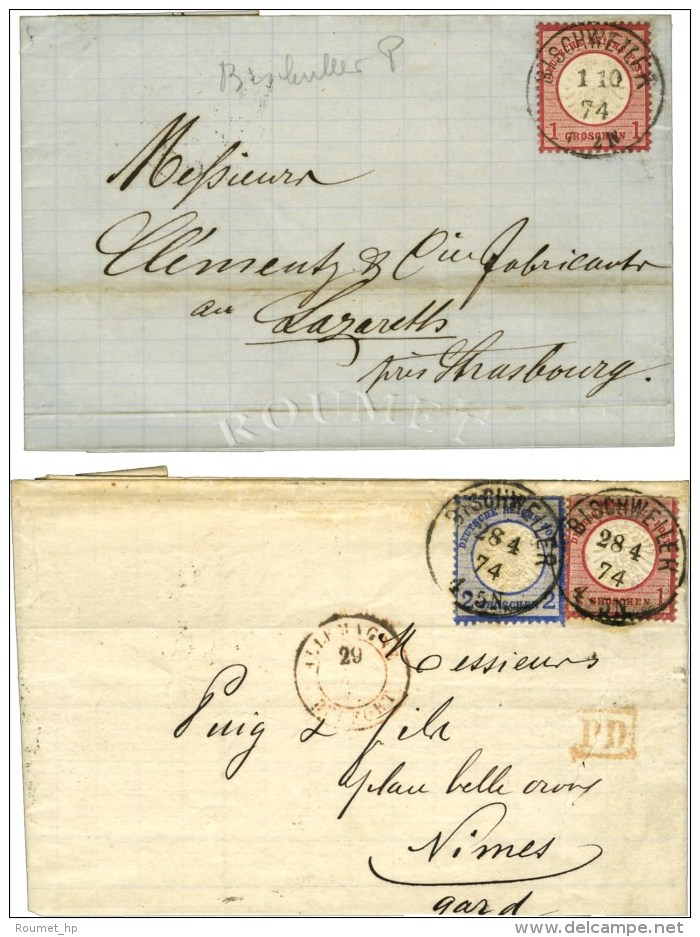 Bischwiller P
BISCHWEILER
1 10
74
2N
1 GROSCHEN 1
Messieurs
Clémentz & Cie fabricants
au Lazareth
près Strasbourg.
ROUMET
BISCHWEILER
28 4
74
4-5N
DEUTSCHE REICHS POST
2 GROSCHEN 2
BISCHWEILER
28 4
74
GROSCHEN 1
ALLEMAGNE
29
BELFORT
Messieurs
Puig & fils
plan belle croix
PD
Nimes
gard
Roumet_hp
©delcampe.net